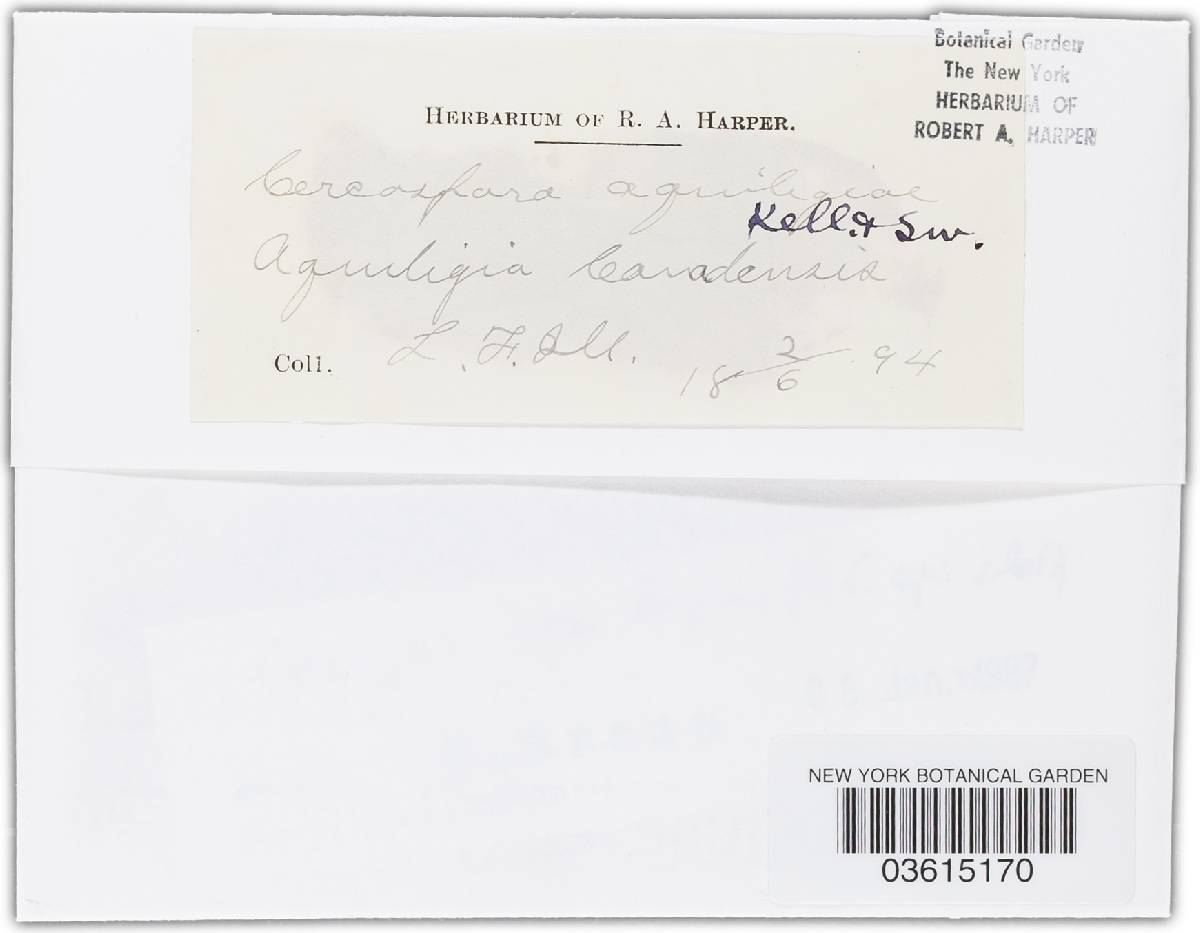 Botanical Garden
The New York
HERBARIUM OF
ROBERT A. HARPER
HERBARIUM OF R. A. HARPER.
Cercospora aquiligiae
Kell. & Sw.
Aquiligia Canadensis
Coll. L. F. Ill. 18 2/6 94
NEW YORK BOTANICAL GARDEN
03615170